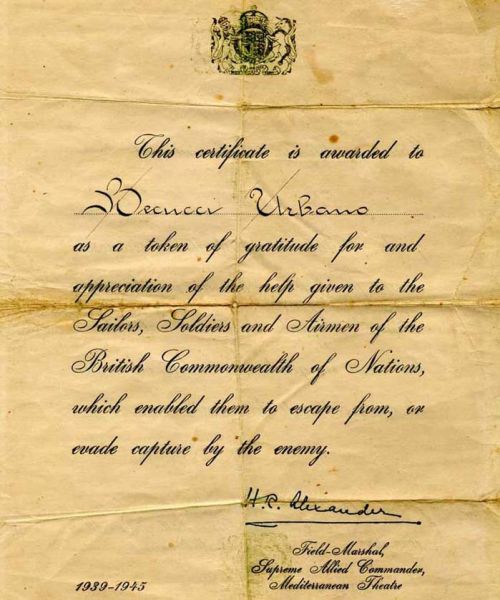 This certificate is awarded to
Becucci Urbano
as a token of gratitude for and
appreciation of the help given to the
Sailors, Soldiers and Airmen of the
British Commonwealth of Nations,
which enabled them to escape from, or
evade capture by the enemy.
H.R. Alexander
Field-Marshal,
Supreme Allied Commander,
Mediterranean Theatre
1939-1945